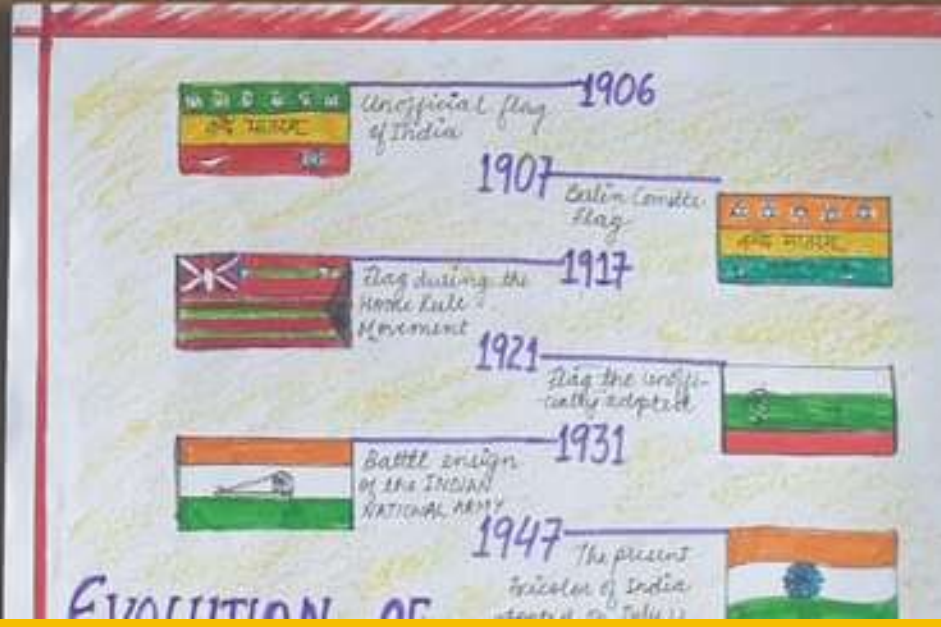 1906
Unofficial flag
of India
वन्दे मातरम्
1907
Berlin Comitte
flag
वन्दे मातरम्
1917
Flag during the
Home Rule
Movement
1921
Flag the unoffi-
cially adopted
1931
Battle ensign
of the INDIAN
NATIONAL ARMY
1947
The present
tricolor of India
EVOLUTION OF